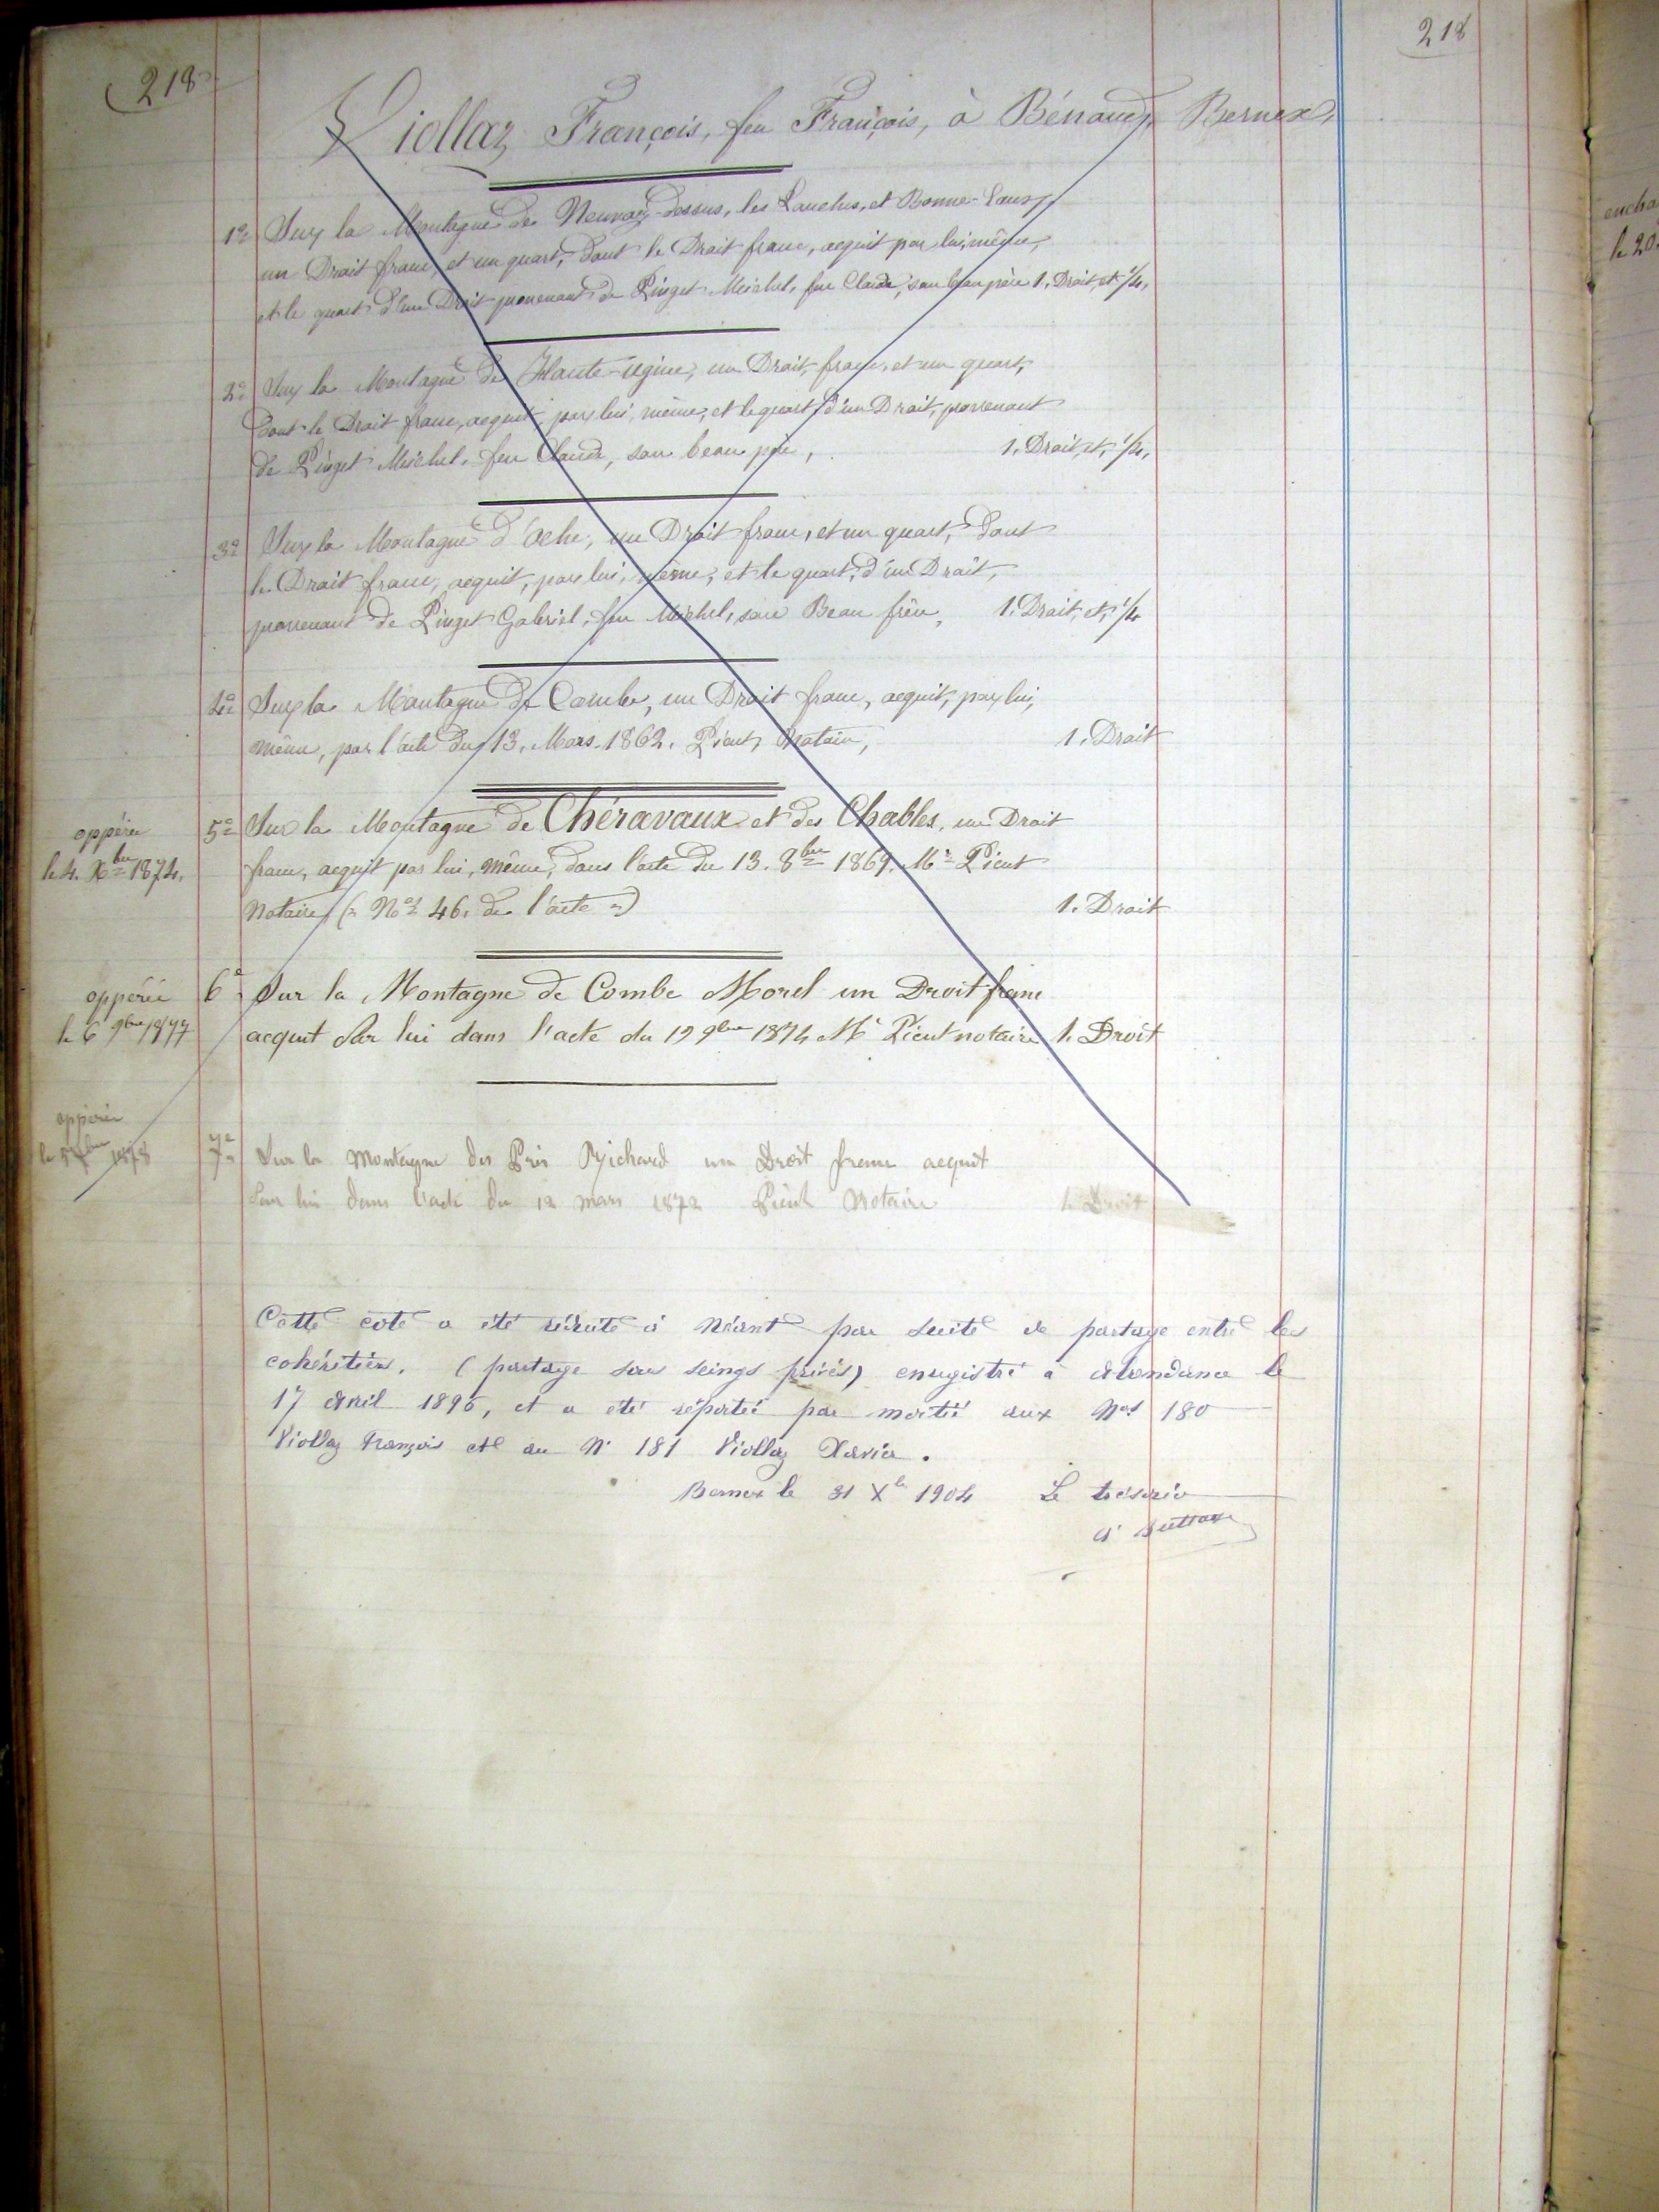 218
218
Viollaz François, feu François, à Bénand, Bernex,
1º Sur la Montagne de Neuvaz-dessus, les Lanches, et Bonne-Eaux,
un Droit franc, et un quart, dont le Droit franc, acquit par lui, même,
et le quart d'un Droit provenant de Pinget Michel, feu Claude, son beau père 1. Droit, et 1/4,
2º Sur la Montagne de Haute-ugine, un Droit, franc, et un quart,
dont le Droit franc, acquit par lui, même, et le quart d'un Droit, provenant
de Pinget Michel, feu Claude, son beau père, 1. Droit, et, 1/4,
3º Sur la Montagne d'oche, un Droit franc, et un quart, dont
le Droit franc, acquit, par lui, même, et le quart, d'un Droit,
provenant de Pinget Gabriel, feu Michel, son Beau frère, 1. Droit, et, 1/4
4º Sur la Montagne de Combe, un Droit franc, acquit, par lui,
même, par l'acte du 13. Mars. 1862. Pieut, Notaire, 1. Droit
oppérée
le 4. Xbre 1874.
5º Sur la Montagne de Chéravaux et des Chables, un Droit
franc, acquit par lui, même, dans l'acte du 13. 8bre 1869. Mr Pieut
Notaire (= Nº 46. de l'acte =) 1. Droit
opperée
le 6 9bre 1877
6º Sur la Montagne de Combe Morel un Droit franc
acquit Par lui dans l'acte du 19 9bre 1874 Mr Pieut notaire 1. Droit
opperée
le 5 bre 1878
7º Sur la Montagne des Prés Richard un Droit franc acquit
Par lui dans l'acte du 12 mars 1872 Pieut Notaire 1. Droit
Cette cote a été réduite à Néant par suite de partage entre les
cohéritiers. (partage sous seings privés) enregistré à Abondance le
17 Avril 1896, et a été répartée par moitié aux Nos 180
Viollaz François et au Nº 181 Viollaz Xavier.
Bernex le 31 Xbre 1904 Le trésorier